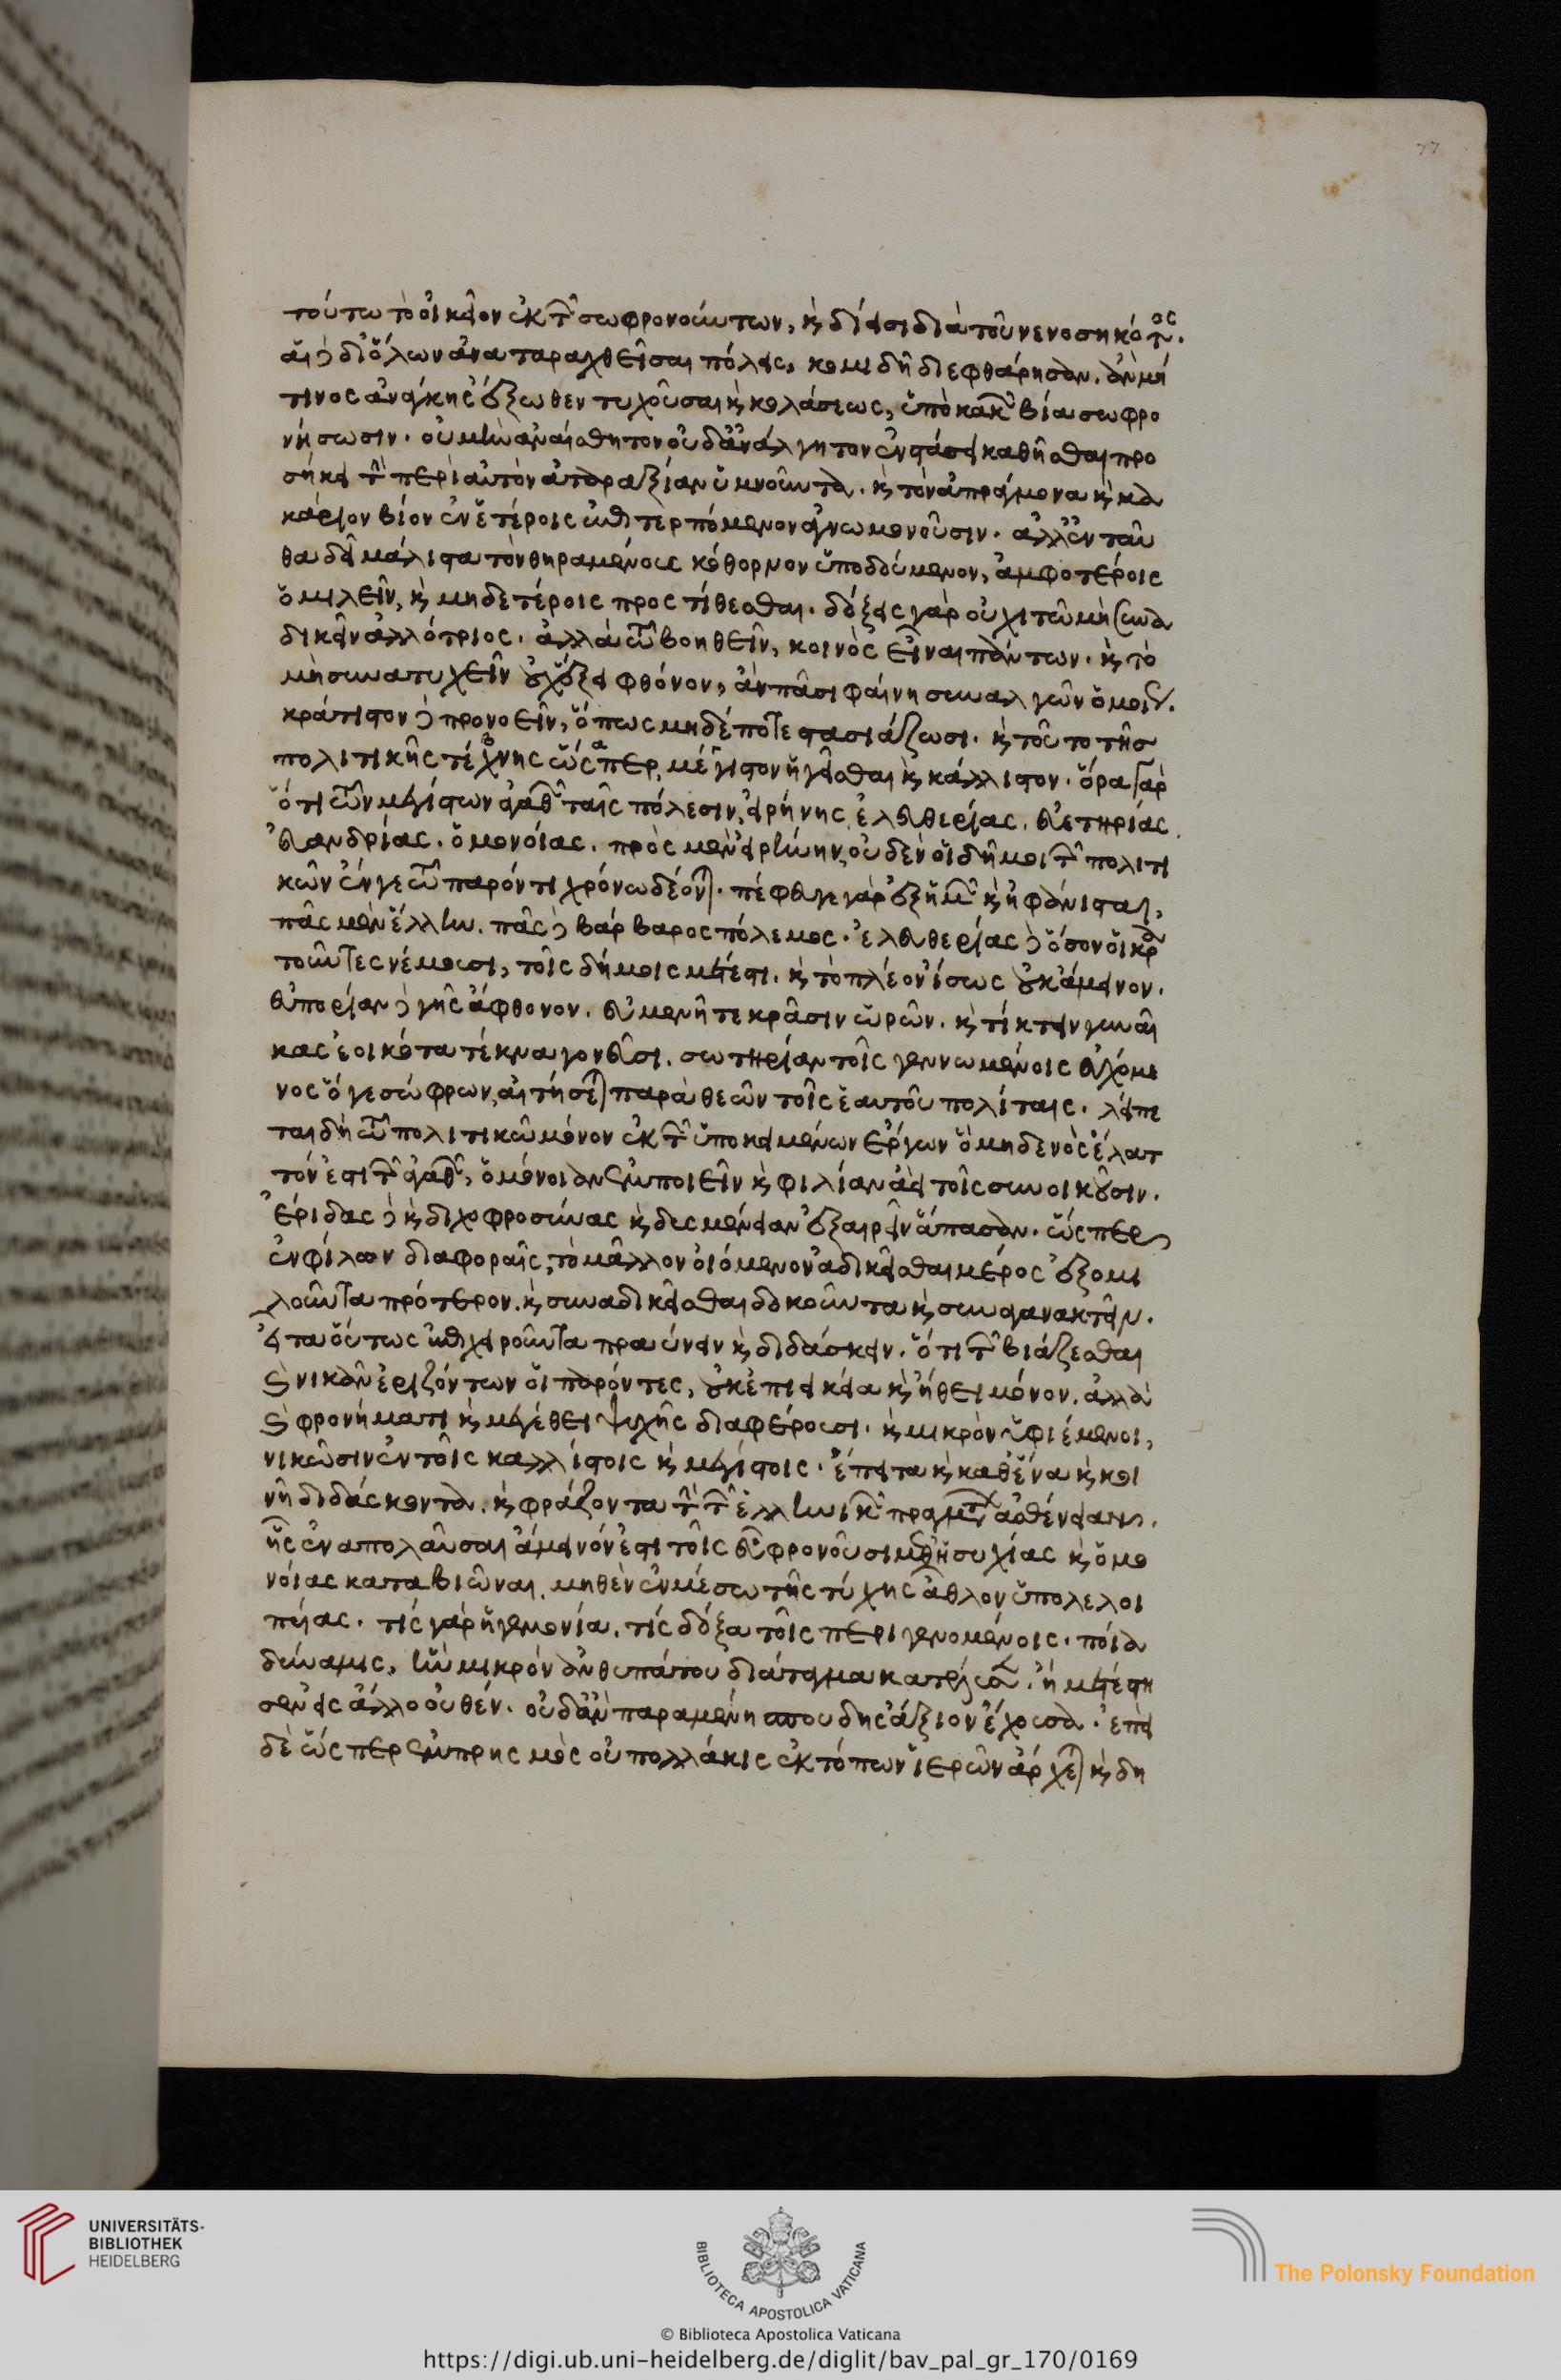 77
τούτω τὸ οἰκεῖον ἐκ τῶν σωφρονούντων, καὶ δίεισι διὰ τοῦ νενοσηκότος.
αἱ δὲ δι᾽ ὅλων ἀναταραχθεῖσαι πόλεις, κομιδῆ διεφθάρησαν. ἂν μή
τινος ἀνάγκης ἔξωθεν τυχοῦσαι καὶ κολάσεως, ὑπὸ κακῶν βία σωφρο
νήσωσιν. οὐ μὴν ἀναίσθητον οὐδ᾽ ἀνάλγητον ἐν στάσει καθῆσθαι προ
σήκει τὴν περὶ αὐτὸν ἀταραξίαν ὑμνοῦντα. καὶ τὸν ἀπράγμονα καὶ μα
κάριον βίον ἐν ἑτέροις ἐπιτερπόμενον ἀγνωμονοῦσιν. ἀλλ᾽ ἐνταῦ
θα δεῖ μάλιστα τὸν θηραμένους κόθορνον ὑποδούμενον, ἀμφοτέροις
ὁμιλεῖν, καὶ μηδετέροις προστίθεσθαι. δόξεις γὰρ οὐχὶ τῶ μὴ συνα
δικεῖν ἀλλότριος. ἀλλὰ τῶ βοηθεῖν, κοινὸς εἶναι πάντων. καὶ τὸ
μὴ συνατυχεῖν οὐχ ἕξει φθόνον, ἂν πᾶσι φαίνη συναλγῶν ὁμοίως.
κράτιστον δὲ προνοεῖν, ὅπως μηδέποτε στασιάζωσι. καὶ τοῦτο τῆσ
πολιτικῆς τέχνης ὥσπερ μέγιστον ἡγεῖσθαι καὶ κάλλιστον. ὅρα γὰρ
ὅτι τῶν μεγίστων ἀγαθῶν ταῖς πόλεσιν, εἰρήνης, ἐλευθερίας. εὐετηρίας.
εὐανδρίας. ὁμονοίας. πρὸς μὲν εἰρήνην, οὐδὲν οἱ δῆμοι τῶν πολιτι
κῶν ἔν γε τῶ παρόντι χρόνω δέονται. πέφευγε γὰρ ἐξ ἡμῶν καὶ ἠφάνισται,
πᾶς μὲν ἕλλην. πᾶς δὲ βάρβαρος πόλεμος. ἐλευθερίας δὲ ὅσον οἱ κρα
τοῦντες νέμουσι, τοῖς δήμοις μέτεστι. καὶ τὸ πλέον ἴσως οὐκ ἄμεινον.
εὐπορίαν δὲ γῆς ἄφθονον. εὐμενῆ τε κρᾶσιν ὡρῶν. καὶ τίκτειν γυναῖ
κας ἐοικότα τέκνα γονεῦσι. σωτηρίαν τοῖς γεννωμένοις εὐχόμε
νος ὅ γε σώφρων, αἰτήσεται παρὰ θεῶν τοῖς ἑαυτοῦ πολίταις. λείπε
ται δὴ τῶ πολιτικῶ μόνον ἐκ τῶν ὑποκειμένων ἔργων ὃ μηδενὸς ἔλατ
τόν ἐστι τῶν ἀγαθῶν, ὁμόνοιαν ἐμποιεῖν καὶ φιλίαν ἀεὶ τοῖς συνοικοῦσιν.
ἔριδας δὲ καὶ διχοφροσύνας καὶ δυσμένειαν ἐξαιρεῖν ἅπασαν. ὥσπερ
ἐν φίλων διαφοραῖς, τὸ μᾶλλον οἰόμενον ἀδικεῖσθαι μέρος ἐξομι
λοῦντα πρότερον. καὶ συναδικεῖσθαι δοκοῦντα καὶ συναγανακτεῖν.
εἶτα οὕτως ἐπιχειροῦντα πραΰνειν καὶ διδάσκειν. ὅτι τῶν βιάζεσθαι
καὶ νικᾶν ἐριζόντων οἱ παρόντες, οὐκ ἐπιεικεία καὶ ἤθει μόνον. ἀλλὰ
καὶ φρονήματι καὶ μεγέθει ψυχῆς διαφέρουσι. καὶ μικρὸν ὑφιέμενοι,
νικῶσιν ἐν τοῖς καλλίστοις καὶ μεγίστοις. ἔπειτα καὶ καθ᾽ ἕνα καὶ κοι
νῆ διδάσκοντα. καὶ φράζοντα τὴν τῶν ἑλληνικῶν πραγμάτων ἀσθένειαν.
ἧς ἐναπολαῦσαι ἄμεινόν ἐστι τοῖς εὖ φρονοῦσι μεθ᾽ ἡσυχίας καὶ ὁμο
νοίας καταβιῶναι. μηθὲν ἐν μέσω τῆς τύχης ἆθλον ὑπολελοι
πυίας. τίς γὰρ ἡγεμονία. τίς δόξα τοῖς περιγενομένοις. ποία
δύναμις, ἣν μικρὸν ἀνθυπάτου διάταγμα κατέλυσεν. ἢ μετέστη
σεν εἰς ἄλλο οὐθέν. οὐδ᾽ ἂν παραμένη σπουδης ἄξιον ἔχουσα. ἐπεὶ
δὲ ὥσπερ ἐμπρησμὸς οὐ πολλάκις ἐκ τόπων ἱερῶν ἄρχεται καὶ δη
UNIVERSITÄTS-
BIBLIOTHEK
HEIDELBERG
BIBLIOTECA APOSTOLICA VATICANA
The Polonsky Foundation
© Biblioteca Apostolica Vaticana
https://digi.ub.uni-heidelberg.de/diglit/bav_pal_gr_170/0169